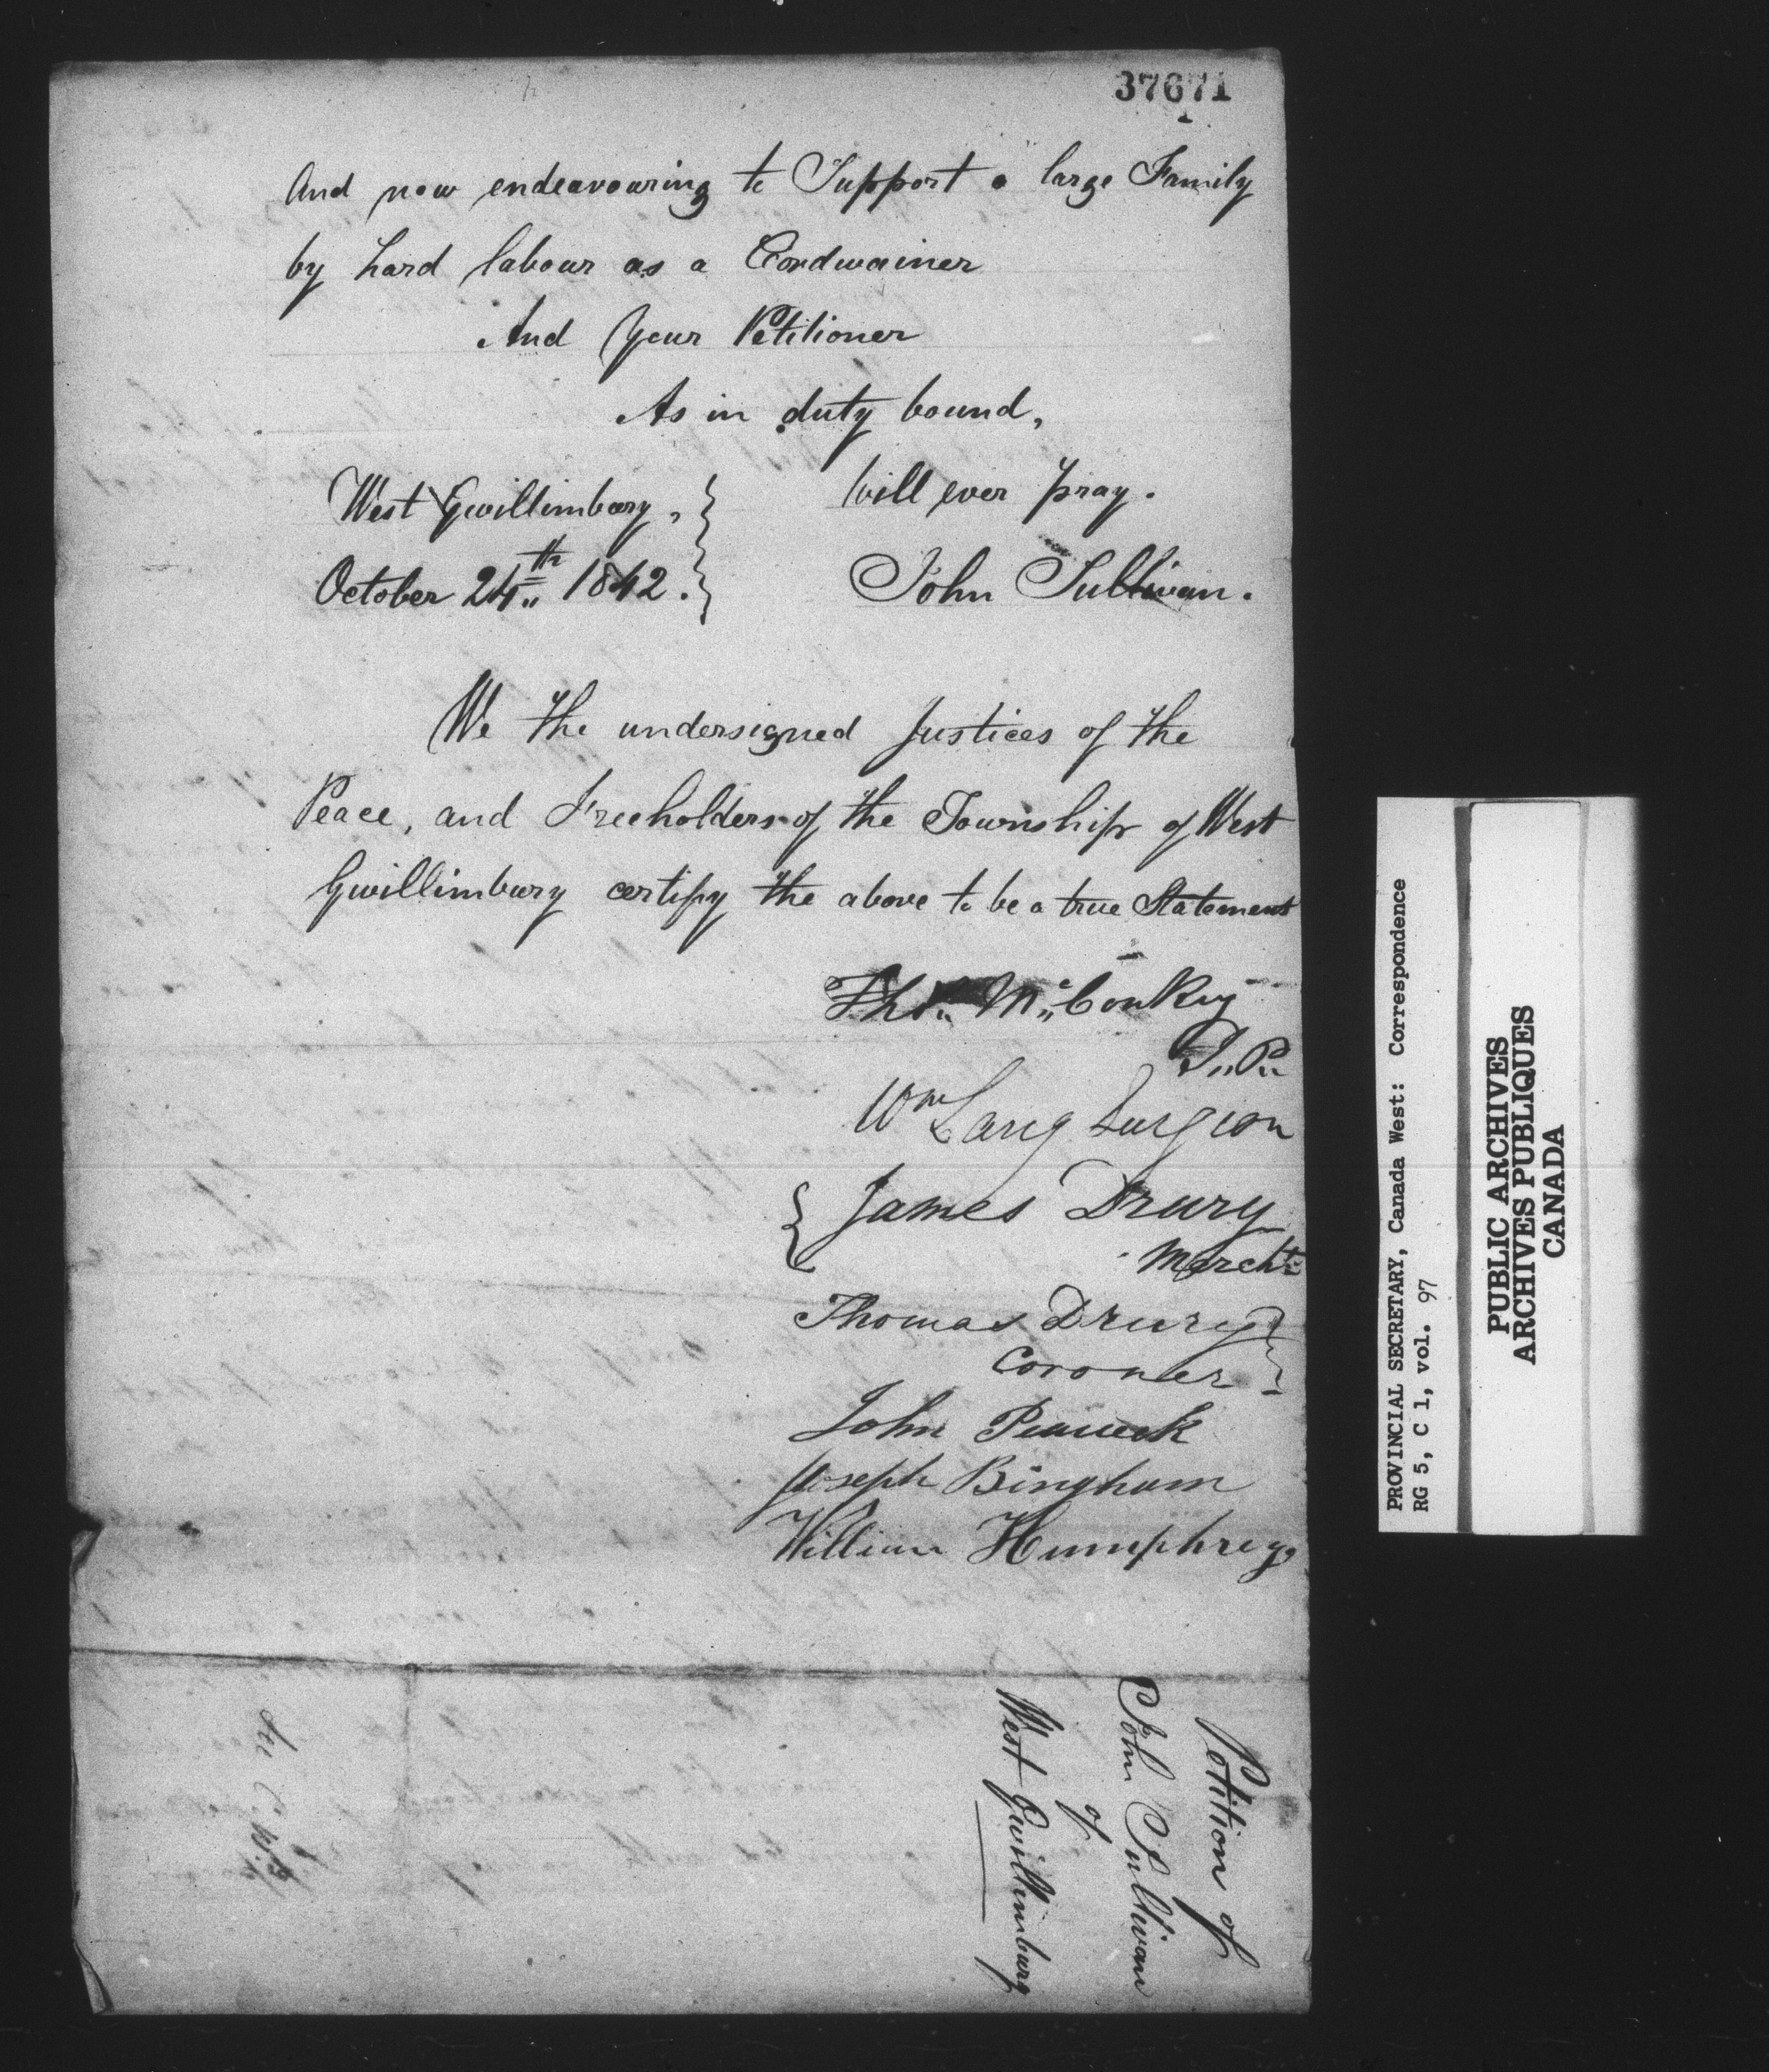 37671
And now endeavouring to Support a large Family
by hard labour as a Cordwainer
And Your Petitioner
As in duty bound,
Will ever pray.
West Gwillimbury,
October 24th 1842.
John Sullivan.
We the undersigned Justices of the
Peace, and Freeholders of the Township of West
Gwillimbury certify the above to be a true Statement
Thos. Mc.Conkey
J.P.
Wm Lang Surgion
James Drury
Mercht
Thomas Drury
Coroner
John Peacock
Joseph Bingham
William Humphreys
Petition of
John Sullivan
of
West Gwillimbury
PROVINCIAL SECRETARY, Canada West: Correspondence
RG 5, C 1, vol. 97
PUBLIC ARCHIVES
ARCHIVES PUBLIQUES
CANADA